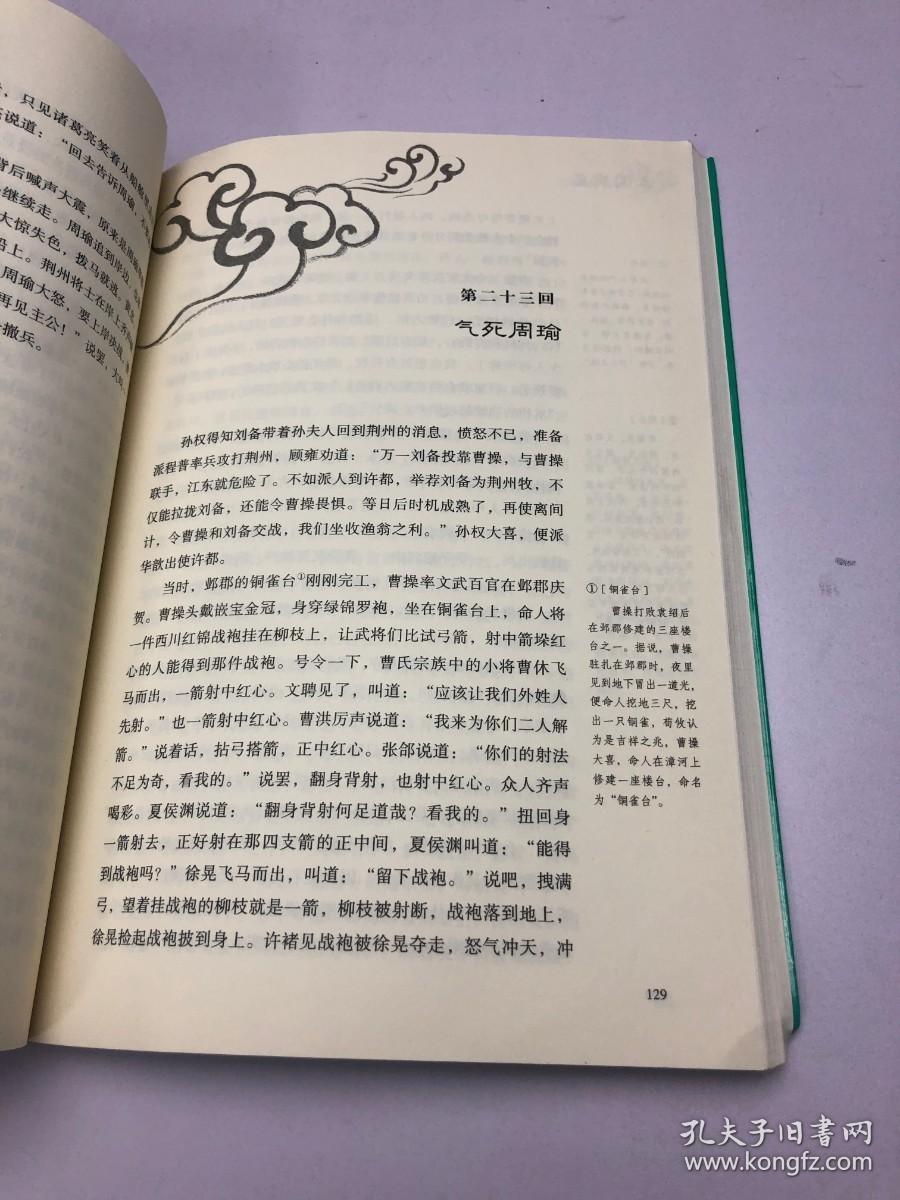 ，只见诸葛亮笑着从船舱里
说道：“回去告诉周瑜，不
背后喊声大震，原来是周瑜
继续走。周瑜追到岸边，
大惊失色，拨马就逃。
船上。荆州将士在岸上齐
周瑜大怒，要上岸决战，
再见主公！”说罢，大叫
撤兵。
第二十三回
气死周瑜
孙权得知刘备带着孙夫人回到荆州的消息，愤怒不已，准备
派程普率兵攻打荆州，顾雍劝道：“万一刘备投靠曹操，与曹操
联手，江东就危险了。不如派人到许都，举荐刘备为荆州牧，不
仅能拉拢刘备，还能令曹操畏惧。等日后时机成熟了，再使离间
计，令曹操和刘备交战，我们坐收渔翁之利。”孙权大喜，便派
华歆出使许都。
当时，邺郡的铜雀台①刚刚完工，曹操率文武百官在邺郡庆
贺。曹操头戴嵌宝金冠，身穿绿锦罗袍，坐在铜雀台上，命人将
一件西川红锦战袍挂在柳枝上，让武将们比试弓箭，射中箭垛红
心的人能得到那件战袍。号令一下，曹氏宗族中的小将曹休飞
马而出，一箭射中红心。文聘见了，叫道：“应该让我们外姓人
先射。”也一箭射中红心。曹洪厉声说道：“我来为你们二人解
箭。”说着话，拈弓搭箭，正中红心。张郃说道：“你们的射法
不足为奇，看我的。”说罢，翻身背射，也射中红心。众人齐声
喝彩。夏侯渊说道：“翻身背射何足道哉？看我的。”扭回身
一箭射去，正好射在那四支箭的正中间，夏侯渊叫道：“能得
到战袍吗？”徐晃飞马而出，叫道：“留下战袍。”说吧，拽满
弓，望着挂战袍的柳枝就是一箭，柳枝被射断，战袍落到地上，
徐晃捡起战袍披到身上。许褚见战袍被徐晃夺走，怒气冲天，冲
①［铜雀台］
曹操打败袁绍后
在邺郡修建的三座楼
台之一。据说，曹操
驻扎在邺郡时，夜里
见到地下冒出一道光，
便命人挖地三尺，挖
出一只铜雀，荀攸认
为是吉祥之兆，曹操
大喜，命人在漳河上
修建一座楼台，命名
为“铜雀台”。
129
孔夫子旧书网
www.kongfz.com